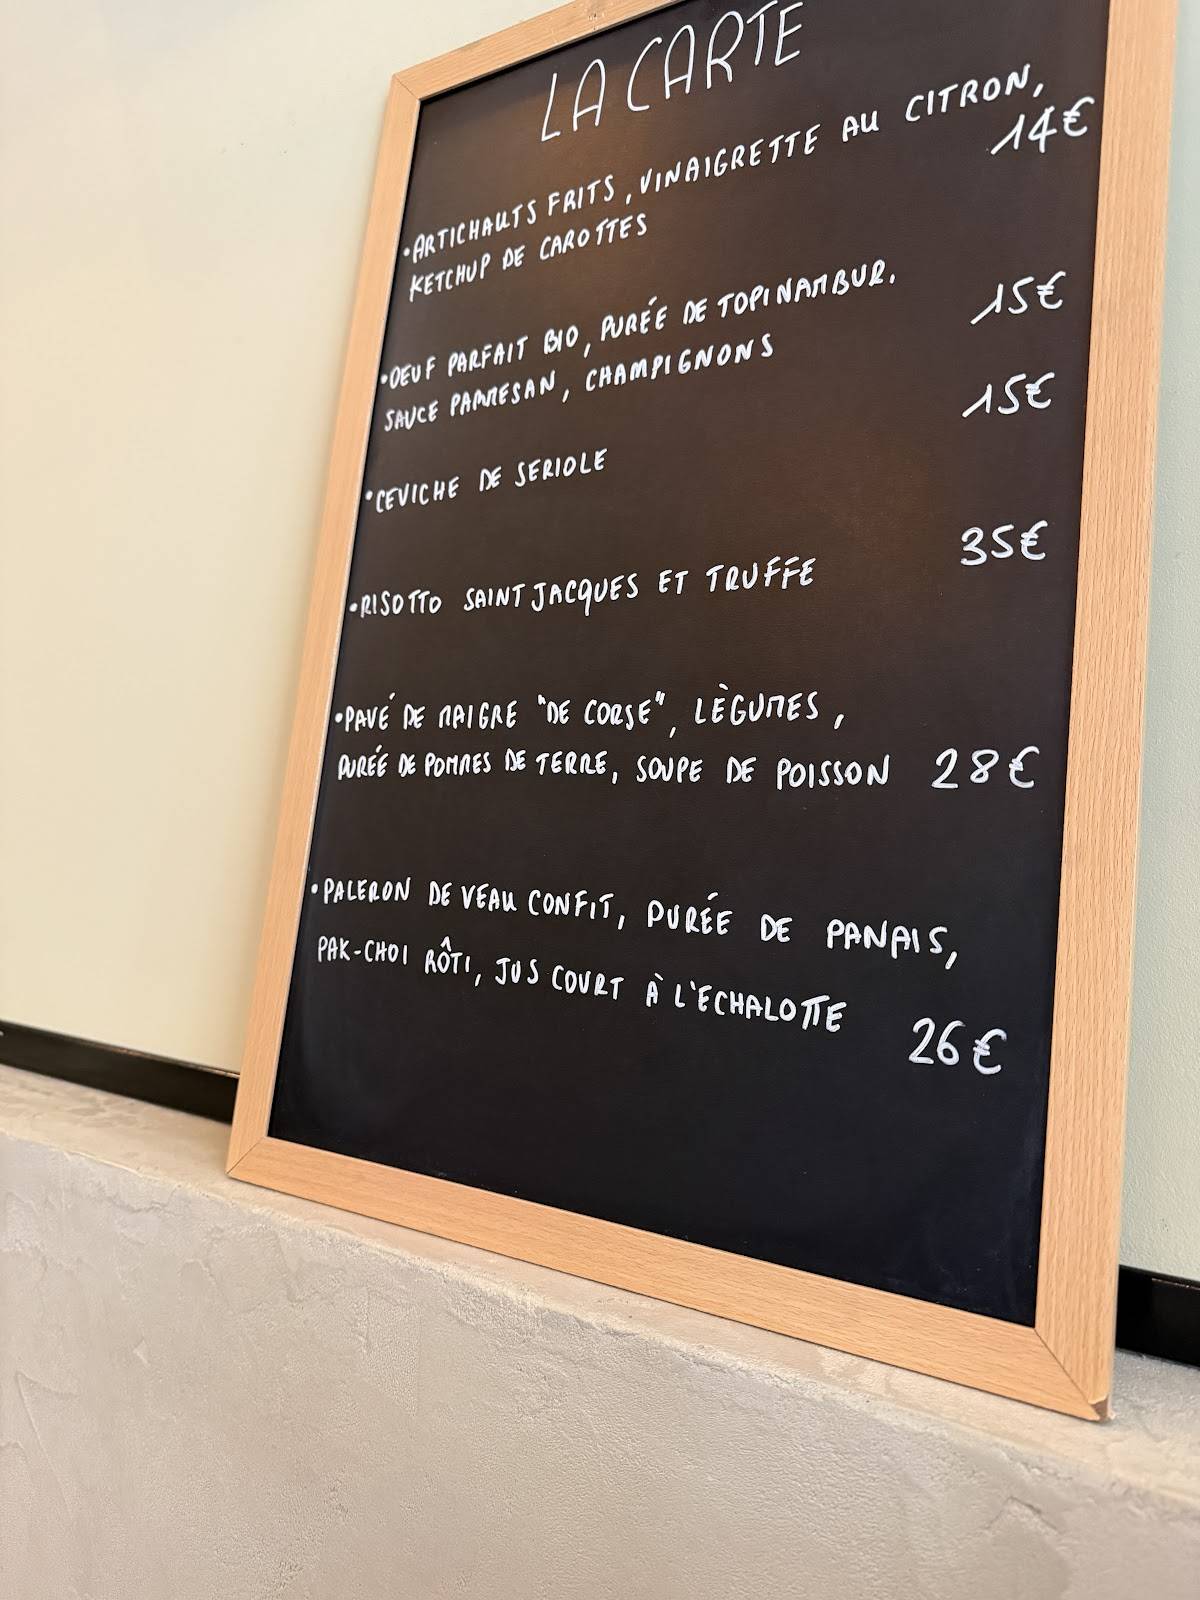 LA CARTE
•ARTICHAUTS FRITS, VINAIGRETTE AU CITRON,
KETCHUP DE CAROTTES 14€
•OEUF PARFAIT BIO, PURÉE DE TOPINAMBUR.
SAUCE PARMESAN, CHAMPIGNONS 15€
•CEVICHE DE SERIOLE 15€
•RISOTTO SAINT JACQUES ET TRUFFE 35€
•PAVÉ DE MAIGRE "DE CORSE", LÈGUMES,
PURÉE DE POMMES DE TERRE, SOUPE DE POISSON 28€
•PALERON DE VEAU CONFIT, PURÉE DE PANAIS,
PAK-CHOI RÔTI, JUS COURT À L'ECHALOTTE 26€